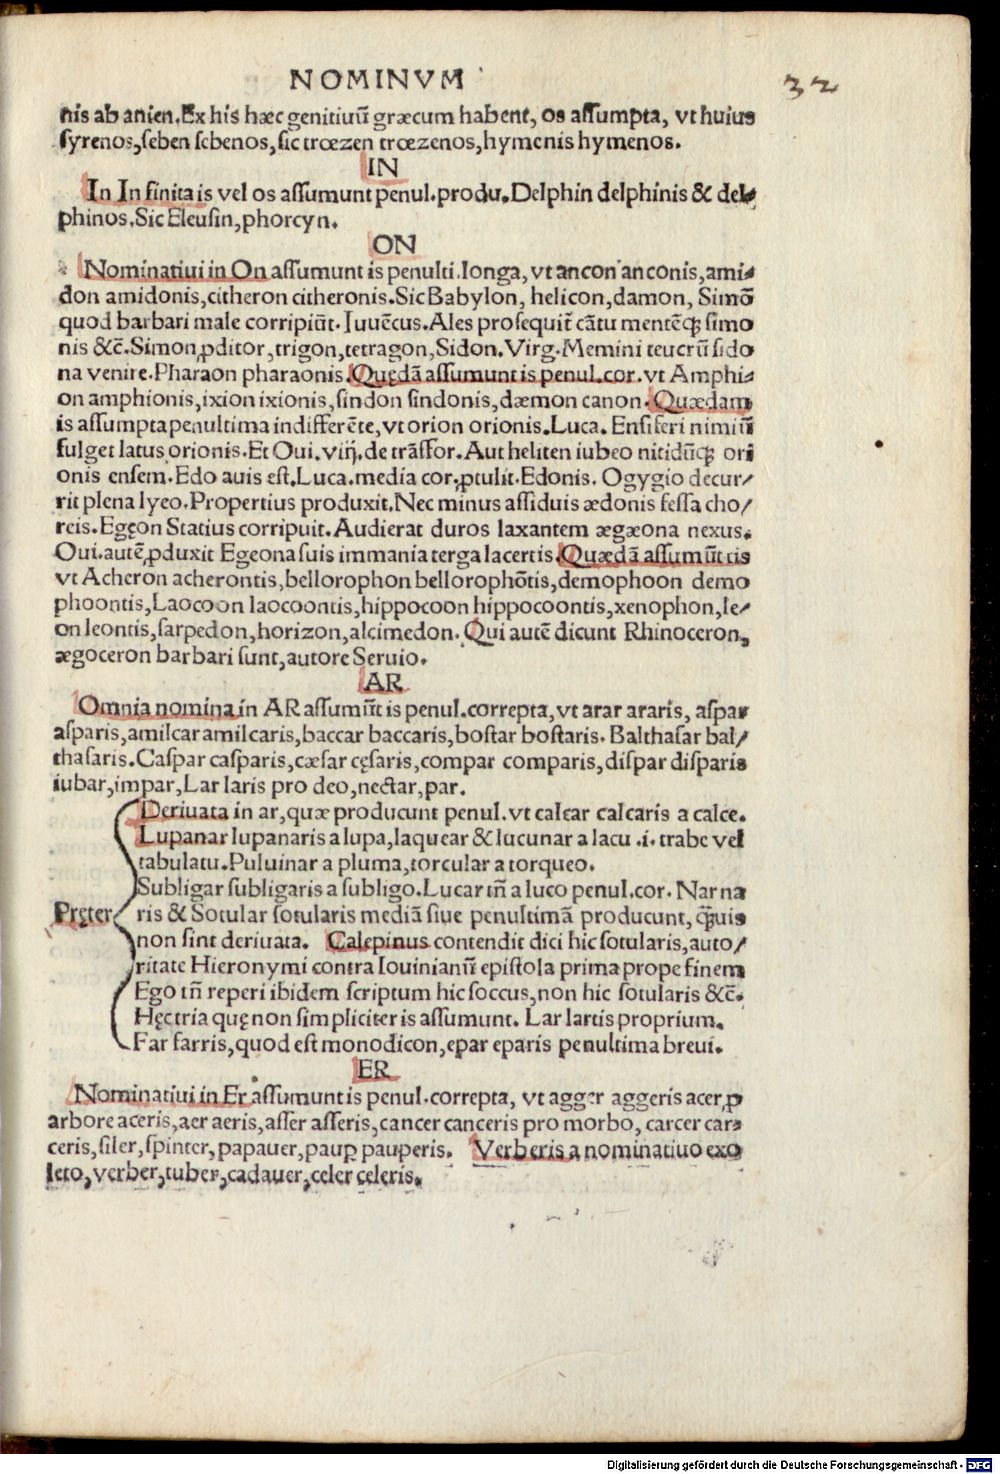 NOMINVM
32
nis ab anien. Ex his hæc genitiuū græcum habent, os assumpta, vt huius
syrenos, seben sebenos, sic trœzen trœzenos, hymenis hymenos.
IN
In In finita is vel os assumunt penul. produ. Delphin delphinis & del-
phinos. Sic Eleusin, phorcyn.
ON
Nominatiui in On assumunt is penulti. longa, vt ancon anconis, ami-
don amidonis, citheron citheronis. Sic Babylon, helicon, damon, Simō
quod barbari male corripiūt. Iuuēcus. Ales prosequit̄ cātu mentēqꝫ simo
nis &c̄. Simon ꝓditor, trigon, tetragon, Sidon. Virg. Memini teucrū sido
na venire. Pharaon pharaonis. Quędā assumunt is penul. cor. vt Amphi-
on amphionis, ixion ixionis, sindon sindonis, dæmon canon. Quædam
is assumpta penultima indifferēte, vt orion orionis. Luca. Ensiferi nimiū
fulget latus orionis. Et Oui. viij. de trāsfor. Aut heliten iubeo nitidūqꝫ ori
onis ensem. Edo auis est. Luca. media cor. ꝓtulit. Edonis. Ogygio decur/
rit plena lyeo. Propertius produxit. Nec minus assiduis ædonis fessa cho/
reis. Egęon Statius corripuit. Audierat duros laxantem ægæona nexus.
Oui. autē ꝓduxit Egeona suis immania terga lacertis. Quædā assumūt tis
vt Acheron acherontis, bellorophon bellorophōtis, demophoon demo
phoontis, Laocoon laocoontis, hippocoon hippocoontis, xenophon, le/
on leontis, sarpedon, horizon, alcimedon. Qui autē dicunt Rhinoceron,
ægoceron barbari sunt, autore Seruio.
AR
Omnia nomina in AR assumūt is penul. correpta, vt arar araris, aspar
asparis, amilcar amilcaris, baccar baccaris, bostar bostaris. Balthasar bal/
thasaris. Caspar casparis, cæsar cęsaris, compar comparis, dispar disparis
iubar, impar, Lar laris pro deo, nectar, par.
Deriuata in ar, quæ producunt penul. vt calcar calcaris a calce.
Lupanar lupanaris a lupa, laquear & lucunar a lacu .i. trabe vel
tabulatu. Puluinar a pluma, torcular a torqueo.
Subligar subligaris a subligo. Lucar tn̄ a luco penul. cor. Nar na
Pręter
ris & Sotular sotularis mediā siue penultimā producunt, q̄uis
non sint deriuata. Calepinus contendit dici hic sotularis, auto/
ritate Hieronymi contra Iouinianū epistola prima prope finem
Ego tn̄ reperi ibidem scriptum hic soccus, non hic sotularis &c̄.
Hęc tria quę non simpliciter is assumunt. Lar lartis proprium.
Far farris, quod est monodicon, epar eparis penultima breui.
ER
Nominatiui in Er assumunt is penul. correpta, vt agger aggeris acer, ꝓ
arbore aceris, aer aeris, asser asseris, cancer canceris pro morbo, carcer car-
ceris, siler, spinter, papauer, paup̱ pauperis. Verberis a nominatiuo exo
leto, verber, tuber, cadauer, celer celeris.
Digitalisierung gefördert durch die Deutsche Forschungsgemeinschaft - DFG